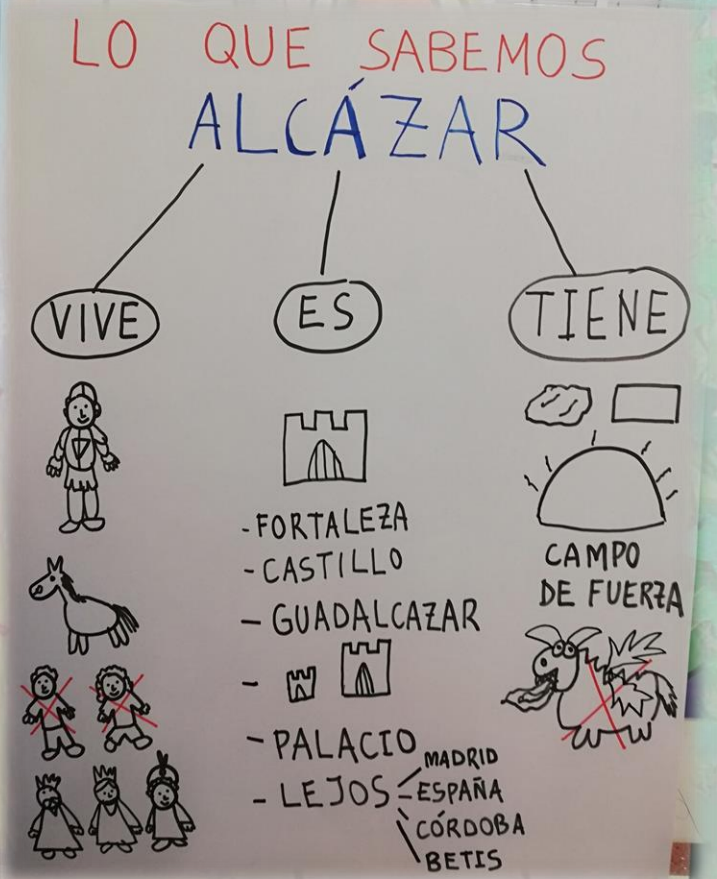 LO QUE SABEMOS
ALCÁZAR
VIVE
ES
TIENE
- FORTALEZA
- CASTILLO
- GUADALCAZAR
-
- PALACIO
- LEJOS
MADRID
ESPAÑA
CÓRDOBA
BETIS
CAMPO
DE FUERZA